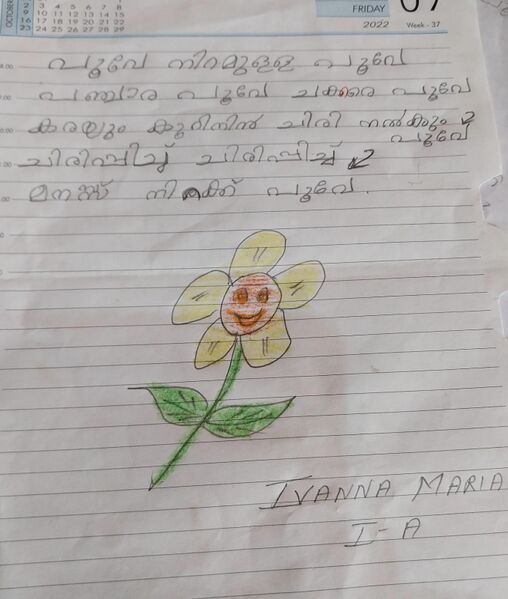 OCTOBER
2 3 4 5 6 7 8
9 10 11 12 13 14 15
16 17 18 19 20 21 22
23 24 25 26 27 28 29
FRIDAY
2022 Week - 37
പൂവേ നിറമുളള പൂവേ
പഞ്ചാര പൂവേ ചക്കരെ പൂവേ
കരയും കുരിനിൻ ചിരി നൽകും പൂവേ
ചിരിപ്പിച്ച് ചിരിപ്പിച്ച്
മനസ്സ് പൂവേ.
IVANNA MARIA
I-A